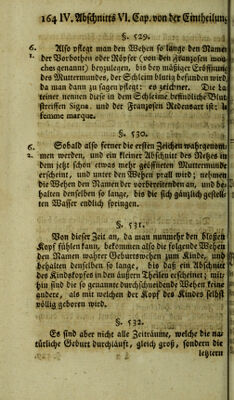 164 IV. Abschnitts VI. Cap. von der Eintheilung
§. 529.
6. Also pflegt man den Wehen so lange den Namen
der Vorbothen oder Röpfer (von den Franzosen mouches
genannt) beyzulegen, bis bey mäßiger Eröffnung
des Muttermundes, der Schleim blutig befunden wird,
da man dann zu sagen pflegt: es zeichnet. Die La
teiner nennen diese in dem Schleime befindliche Blut
streiffen Signa. und der Franzosen Redensart ist: la
femme marque.
§. 530.
6. Sobald also ferner die ersten Zeichen wahrgenom
men werden, und ein kleiner Abschnitt des Netzes in
dem jetzt schon etwas mehr geöffneten Muttermunde
erscheint, und unter den Wehen prall wird; nehmen
die Wehen den Namen der vorbereitenden an, und be
halten denselben so lange, bis die sich gänzlich gestell
ten Wasser endlich springen.
§. 531.
Von dieser Zeit an, da man nunmehr den bloßen
Kopf fühlen kann, bekommen also die folgende Wehen
den Namen wahrer Geburtswehen zum Kinde, und
behalten denselben so lange, bis daß ein Abschnitt
des Kindskopfes in den äußern Theilen erscheint; mit
hin sind die so genannte durchschneidende Wehen keine
andere, als mit welchen der Kopf des Kindes selbst
völlig geboren wird.
§. 532.
Es sind aber nicht alle Zeiträume, welche die na
türliche Geburt durchläuft, gleich groß, sondern die
letztern